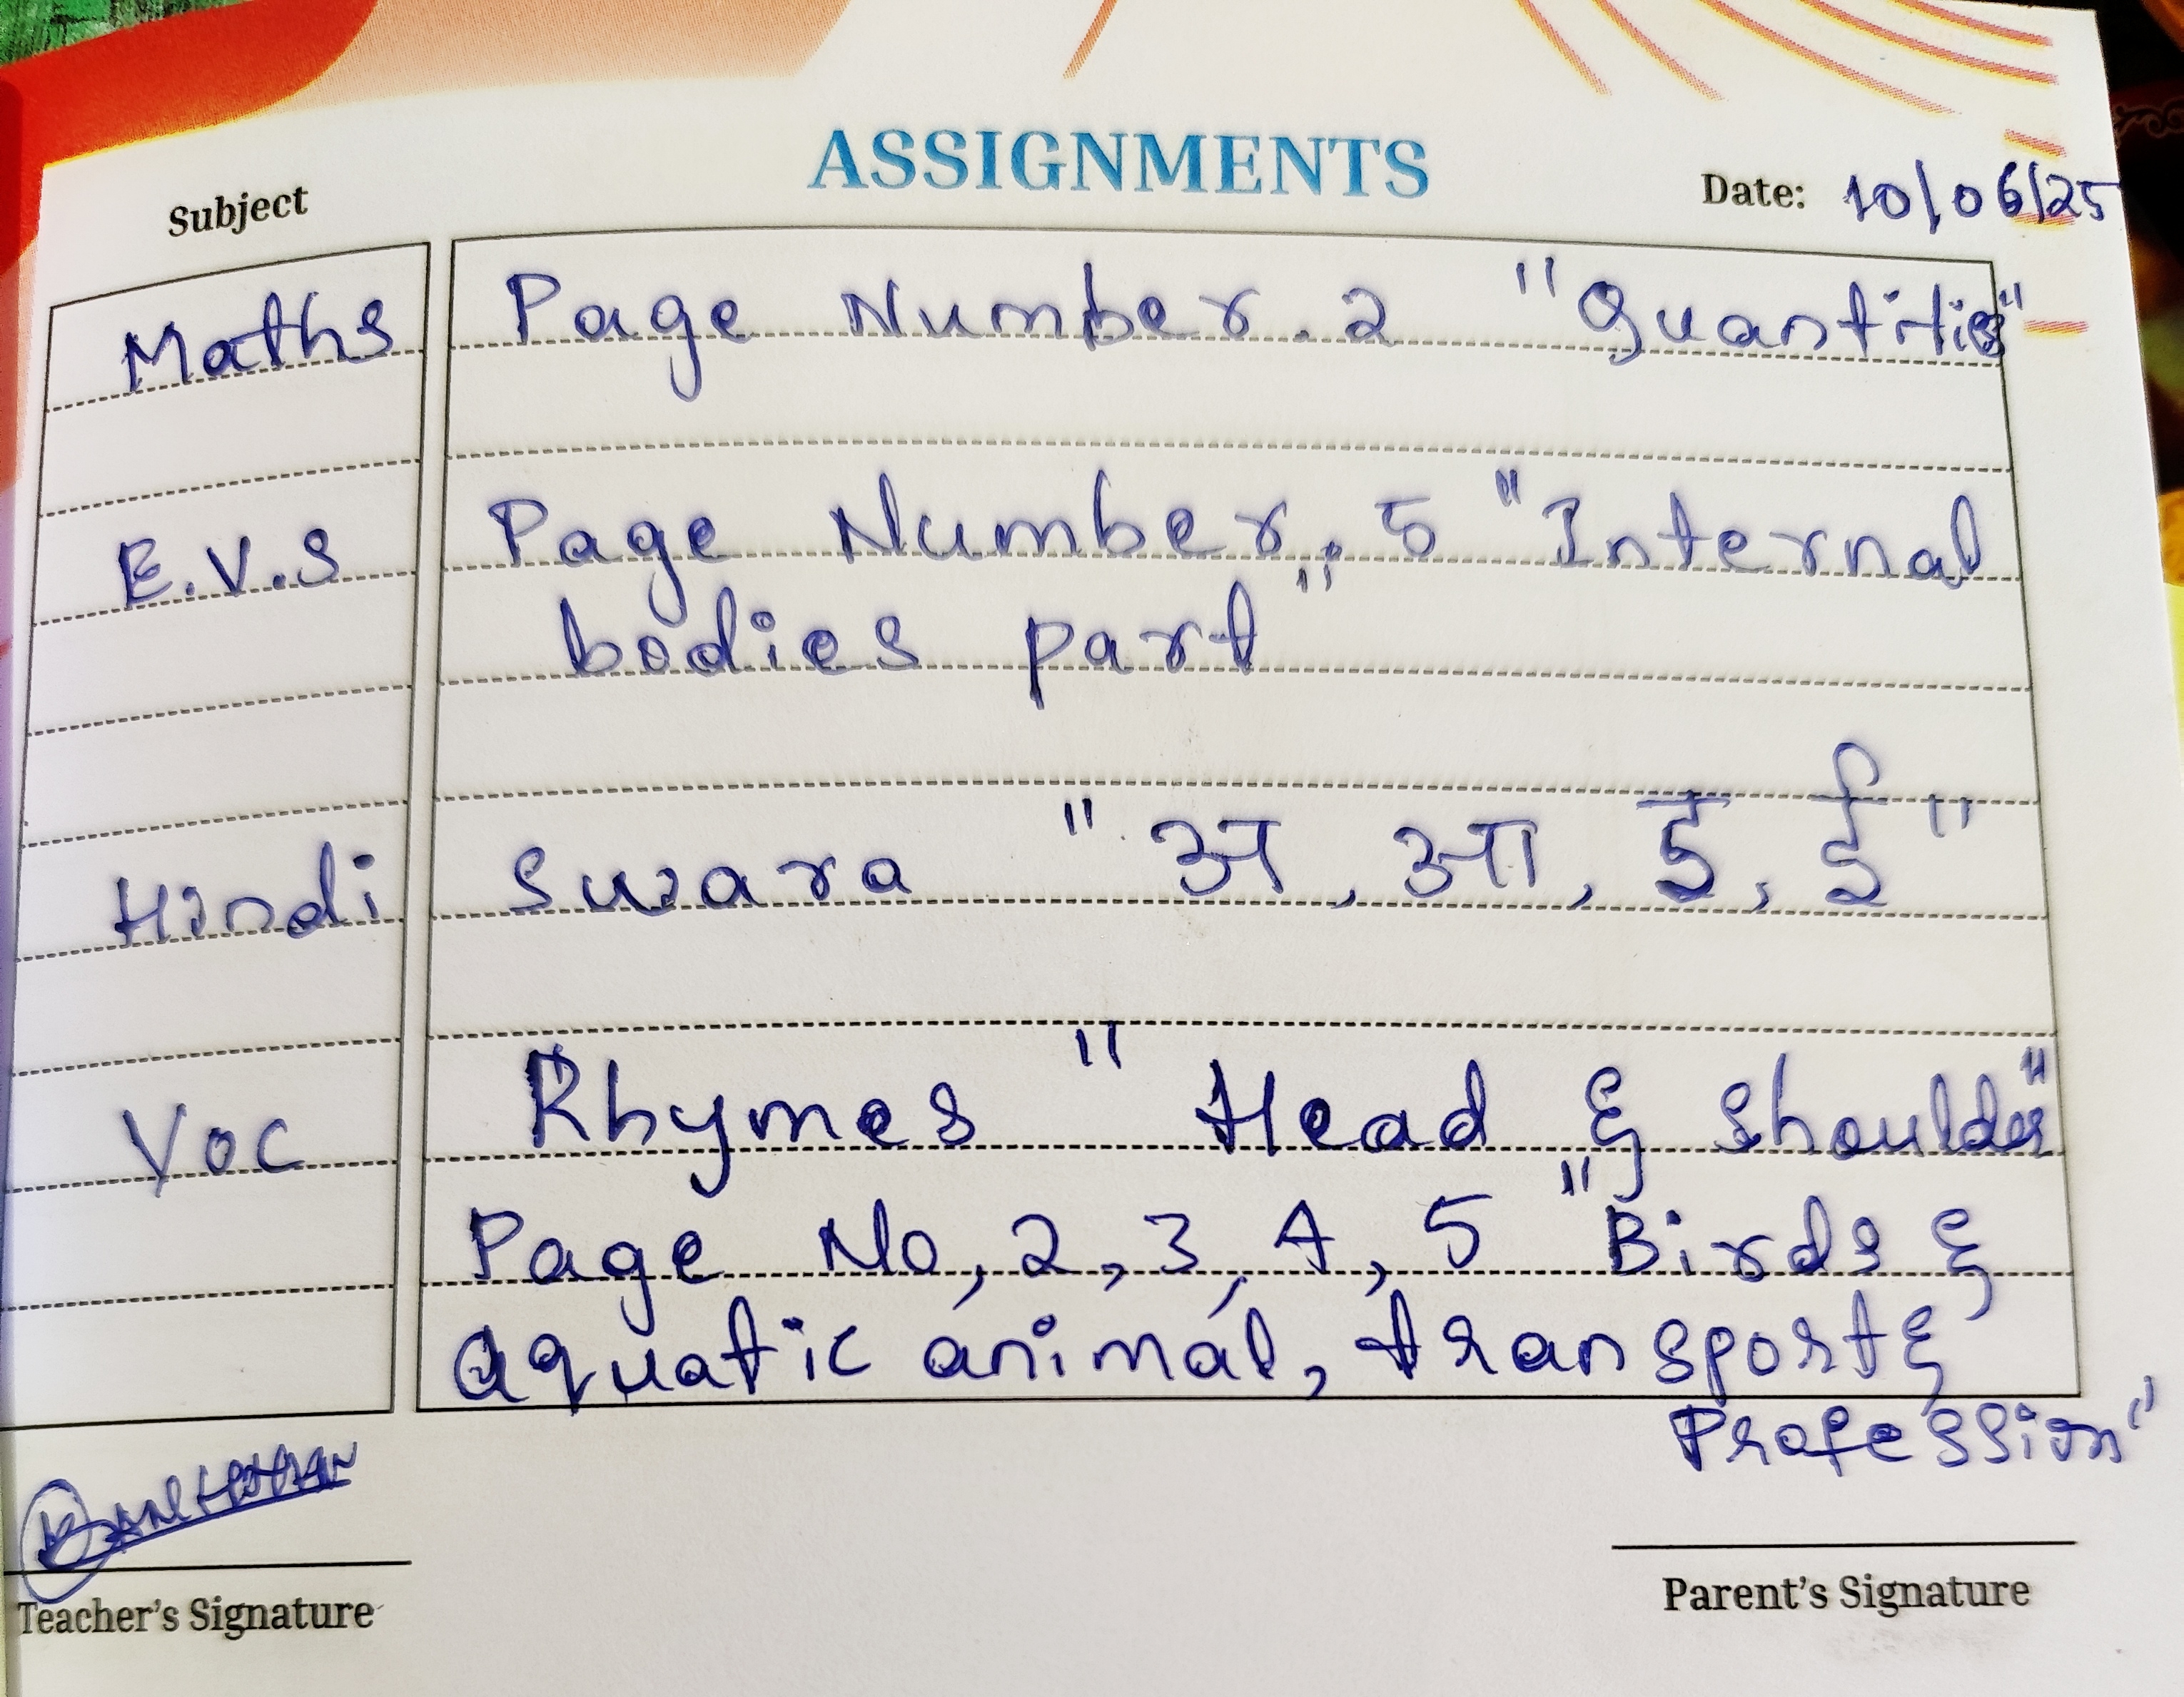 ASSIGNMENTS
Subject
Date: 10/06/25
Maths Page Number. 2 "Quantities"
E.V.S Page Number. 5 "Internal
bodies part"
Hindi Swara "अ, आ, इ, ई"
Voc Rhymes "Head & Shoulder"
Page No, 2, 3, 4, 5 "Birds &
aquatic animal, transport &
Profession"
Teacher's Signature
Parent's Signature